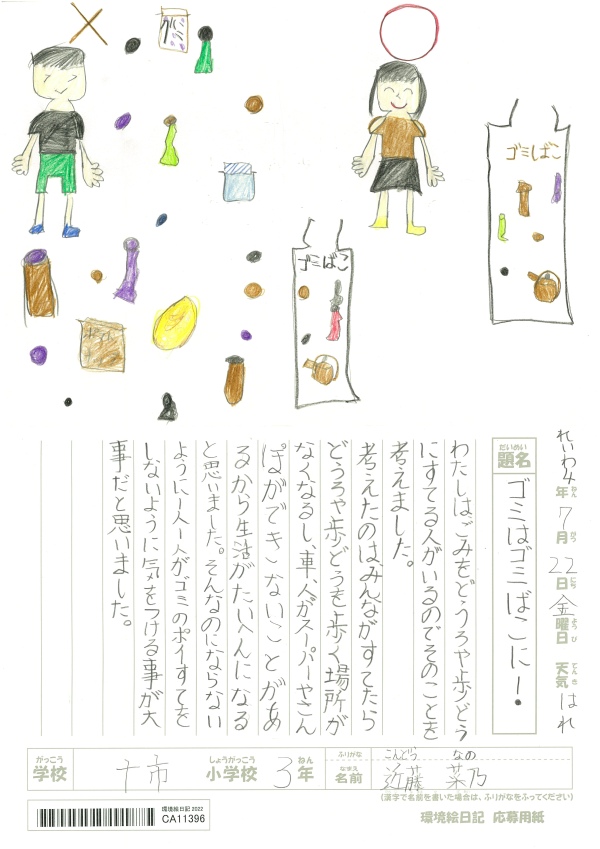 ゴミばこ
ゴミばこ
れいわ4年7月22日金曜日 天気はれ
ねん がつ にち ようび てんき
だいめい
題名
ゴミはゴミばこに!
わたしは、ごみをどうろや歩どう
にすてる人がいるのでそのことを
考えました。
考えたのは、みんながすてたら
どうろや歩どうを歩く場所が
なくなるし、車、人がスーパーやさん
ぽができないことがあ
るから生活がたいへんになる
と思いました。そんなのにならない
ように一人一人がゴミのポイすてを
しないように気をつける事が大
事だと思いました。
がっこう しょうがっこう ねん
学校 十市 小学校 3年
ふりがな こんどう なの
なまえ
名前 近藤 菜乃
(漢字で名前を書いた場合は、ふりがなをふってください)
環境絵日記 2022
CA11396
環境絵日記 応募用紙